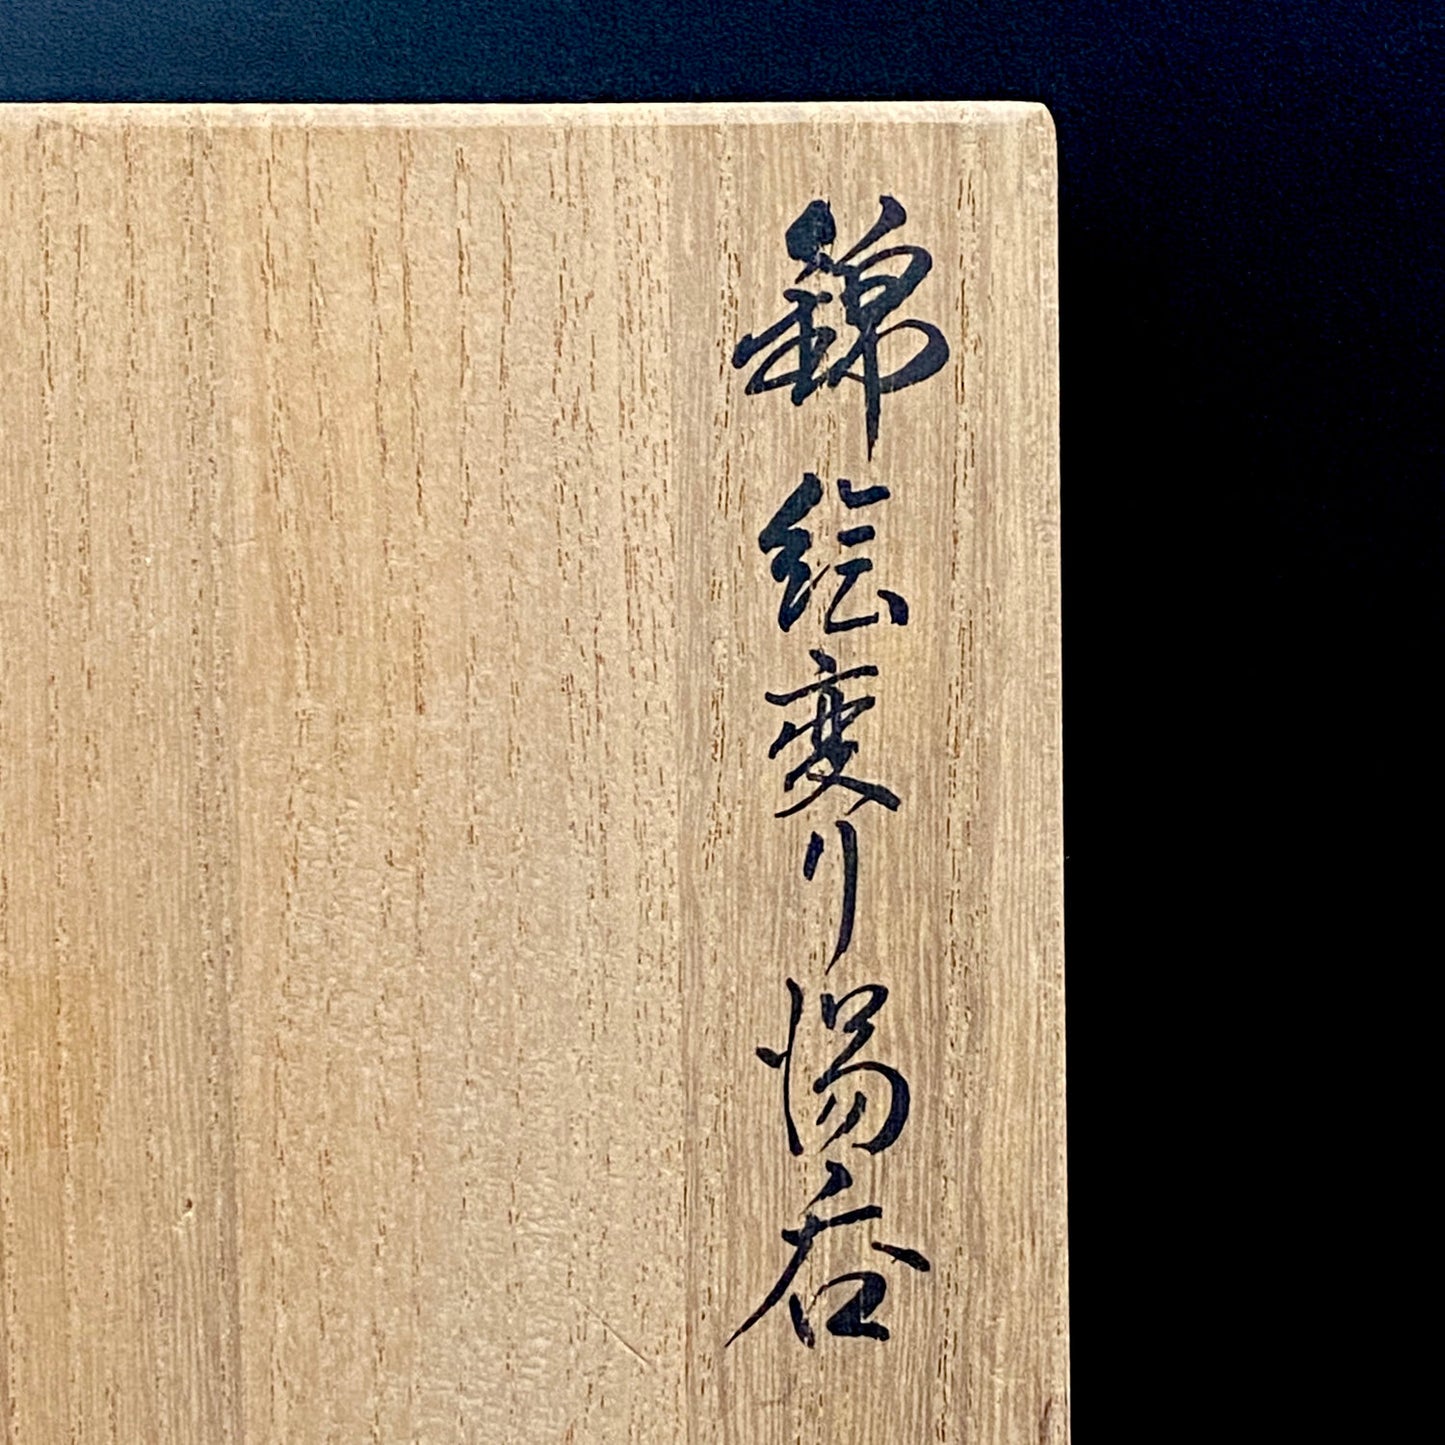 錦絵変り湯呑